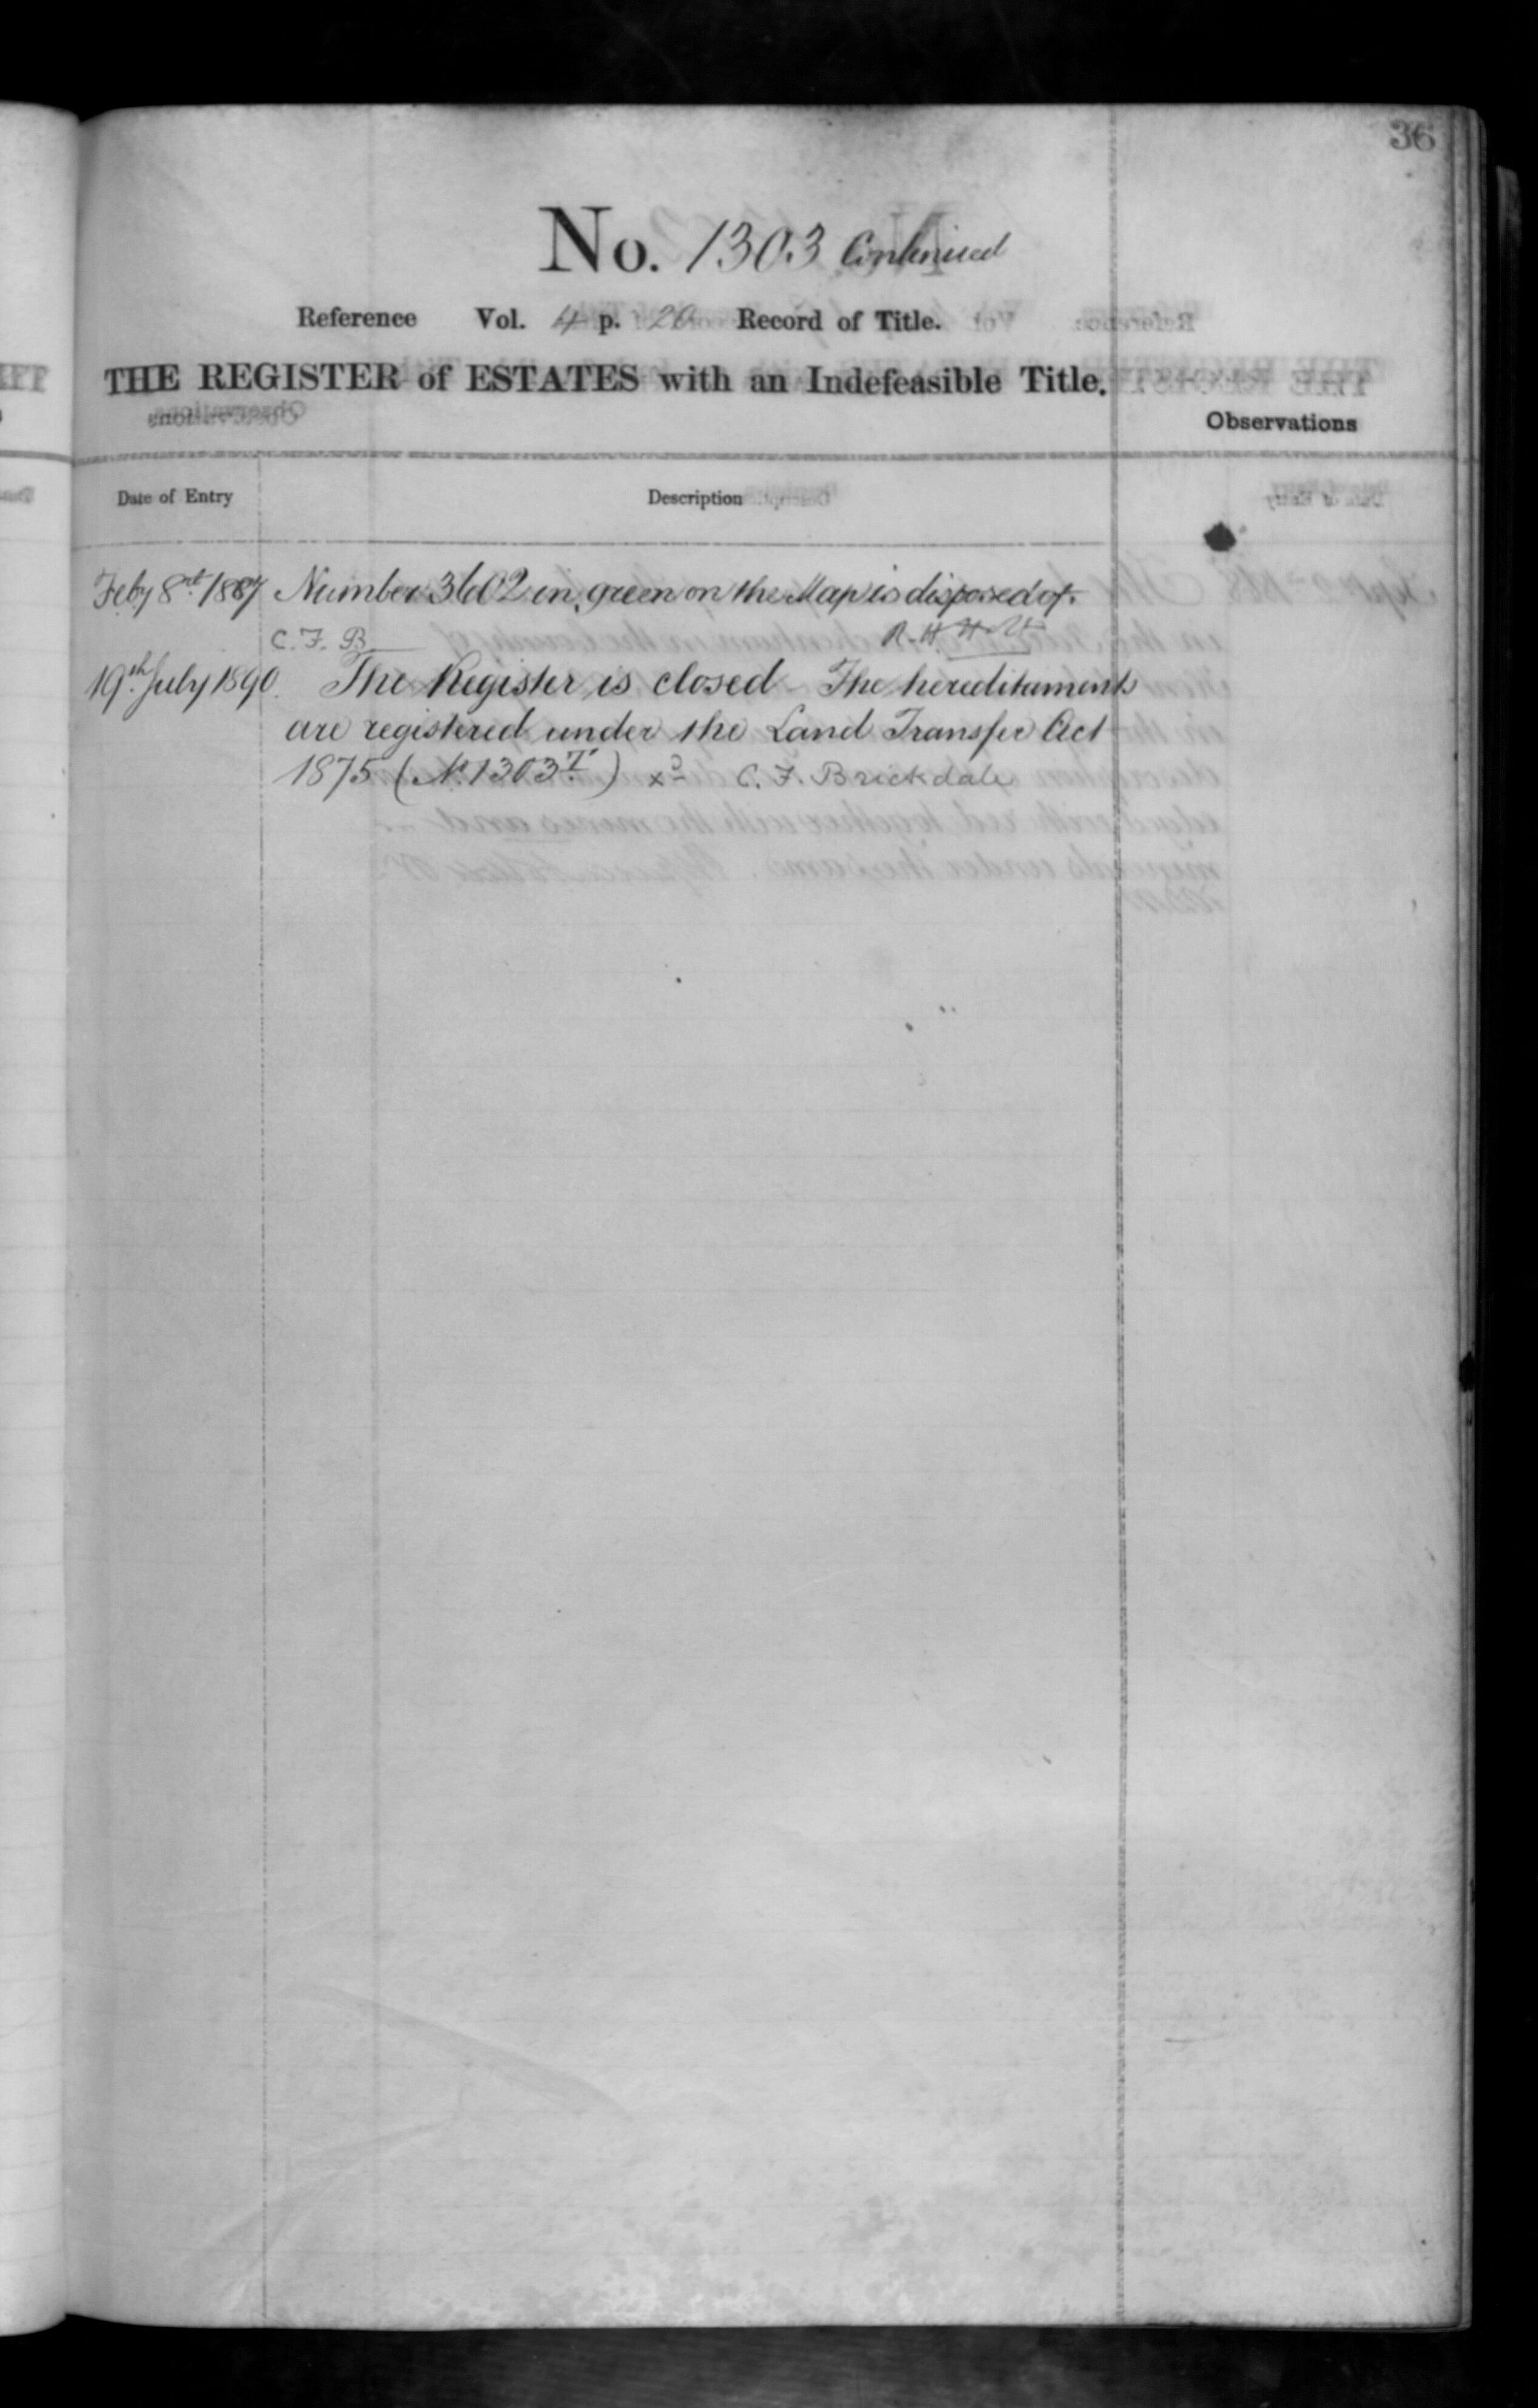 36
No. 1303 Continued
Reference Vol. 4 p. 20 Record of Title.
THE REGISTER of ESTATES with an Indefeasible Title.
Observations
Date of Entry Description
Feby 8th 1887 Number 3602 in green on the Map is disposed of.
C. F. B. R. H. Holt
19th July 1890. The Register is closed The hereditaments
are registered under the Land Transfer Act
1875 (No. 1303 T) C. F. Brickdale